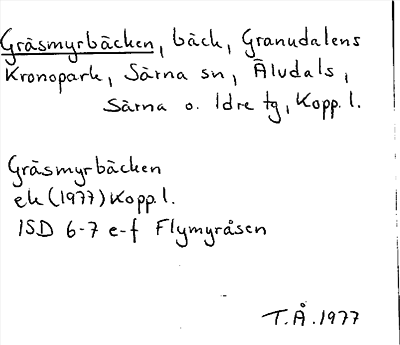 Gräsmyrbäcken, bäck, Granudalens
Kronopark, Särna sn, Äludals,
Särna o. Idre tg, Kopp. l.
Gräsmyrbäcken
ek (1977) Kopp. l.
ISD 6-7 e-f Flymyråsen
T.Å. 1977